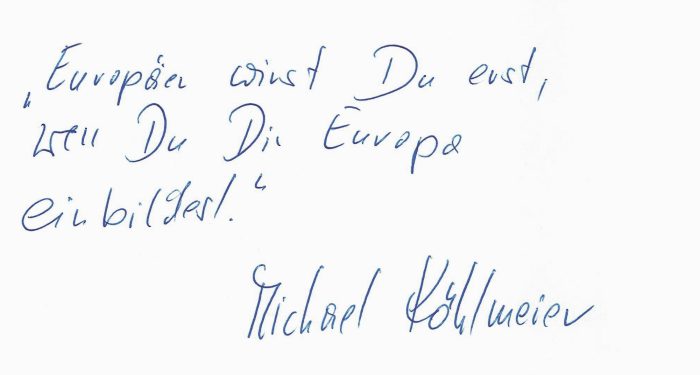 „Europäer wirst Du erst,
weil Du Dir Europa
einbildest.“
Michael Köhlmeier